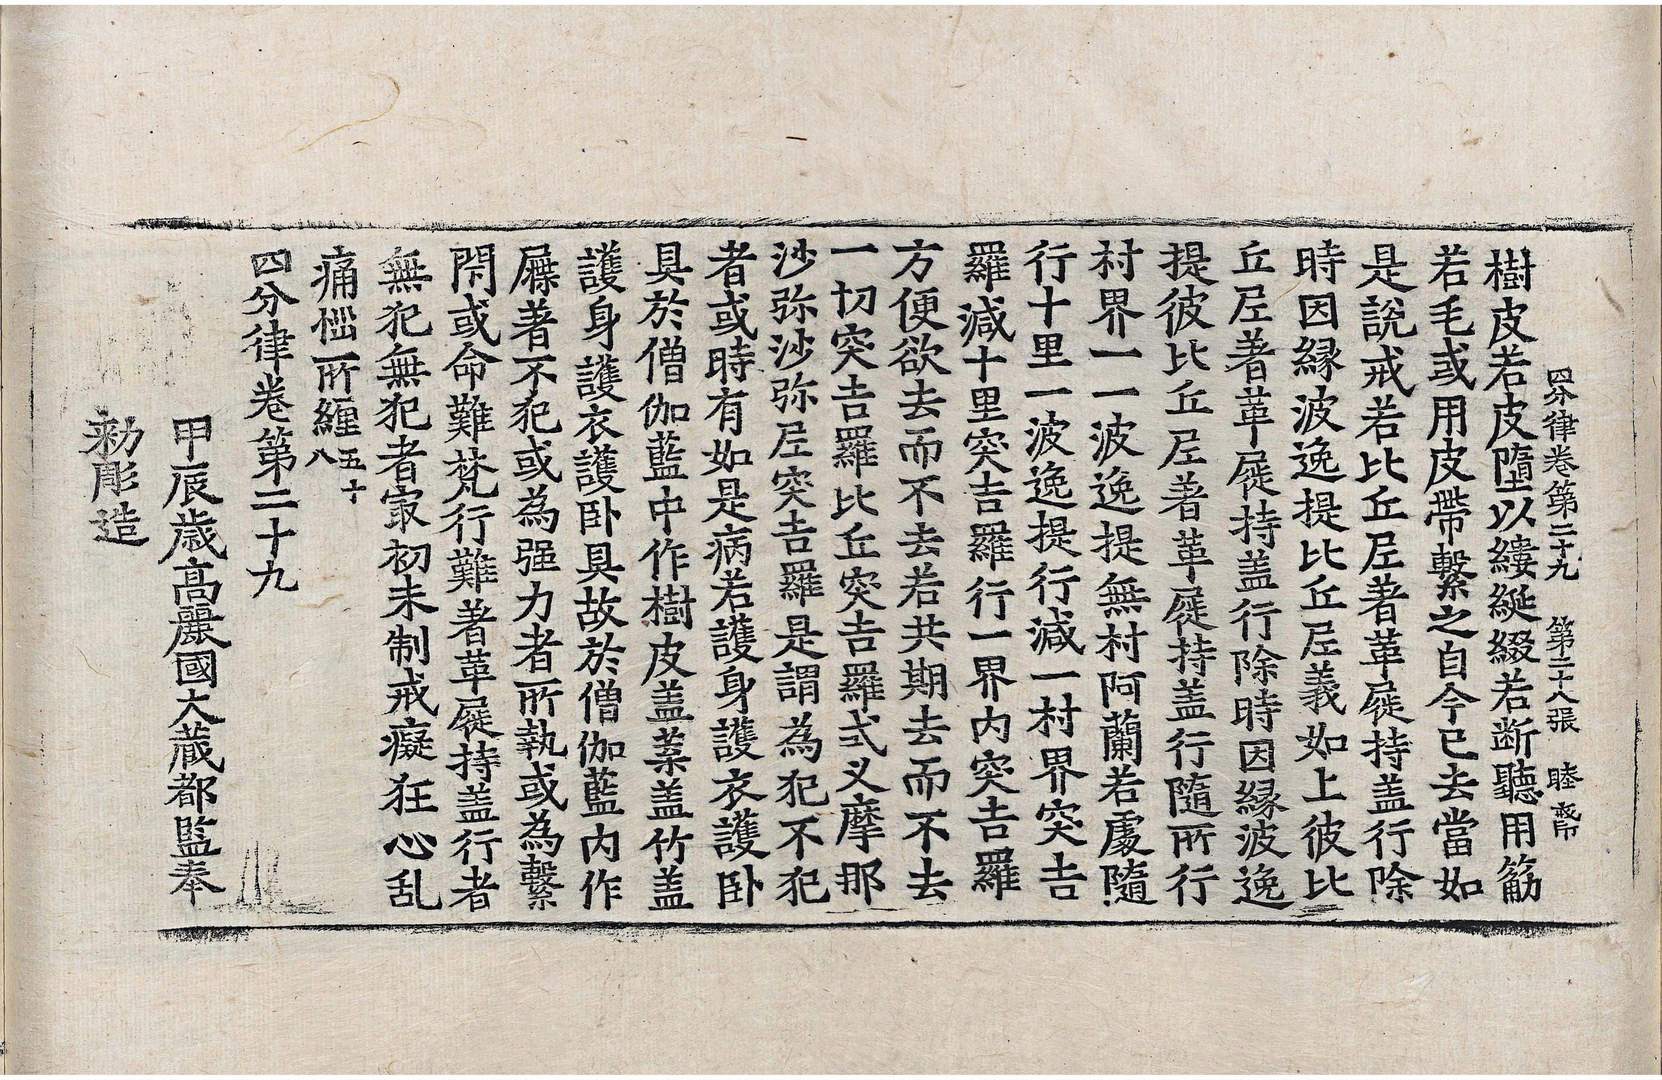 四分律卷第二十九　第二十八張　睦
樹皮若皮墮以縷綖綴若断聽用筋
若毛或用皮帶繫之自今已去當如
是說戒若比丘尼著革屣持盖行除
時因縁波逸提比丘尼義如上彼比
丘尼著革屣持盖行除時因縁波逸
提彼比丘尼著革屣持盖行隨所行
村界一一波逸提無村阿蘭若處隨
行十里一波逸提行減一村界突吉
羅減十里突吉羅行一界内突吉羅
方便欲去而不去若共期去而不去
一切突吉羅比丘突吉羅式叉摩那
沙弥沙弥尼突吉羅是謂為犯不犯
者或時有如是病若護身護衣護卧
具於僧伽藍中作樹皮盖葉盖竹盖
護身護衣護卧具故於僧伽藍内作
屣著不犯或為强力者所執或為繫
閇或命難梵行難著革屣持盖行者
無犯無犯者㝡初未制戒癡狂心乱
痛惱所纏五十八
四分律卷第二十九
甲辰歳高麗國大藏都監奉
勑彫造